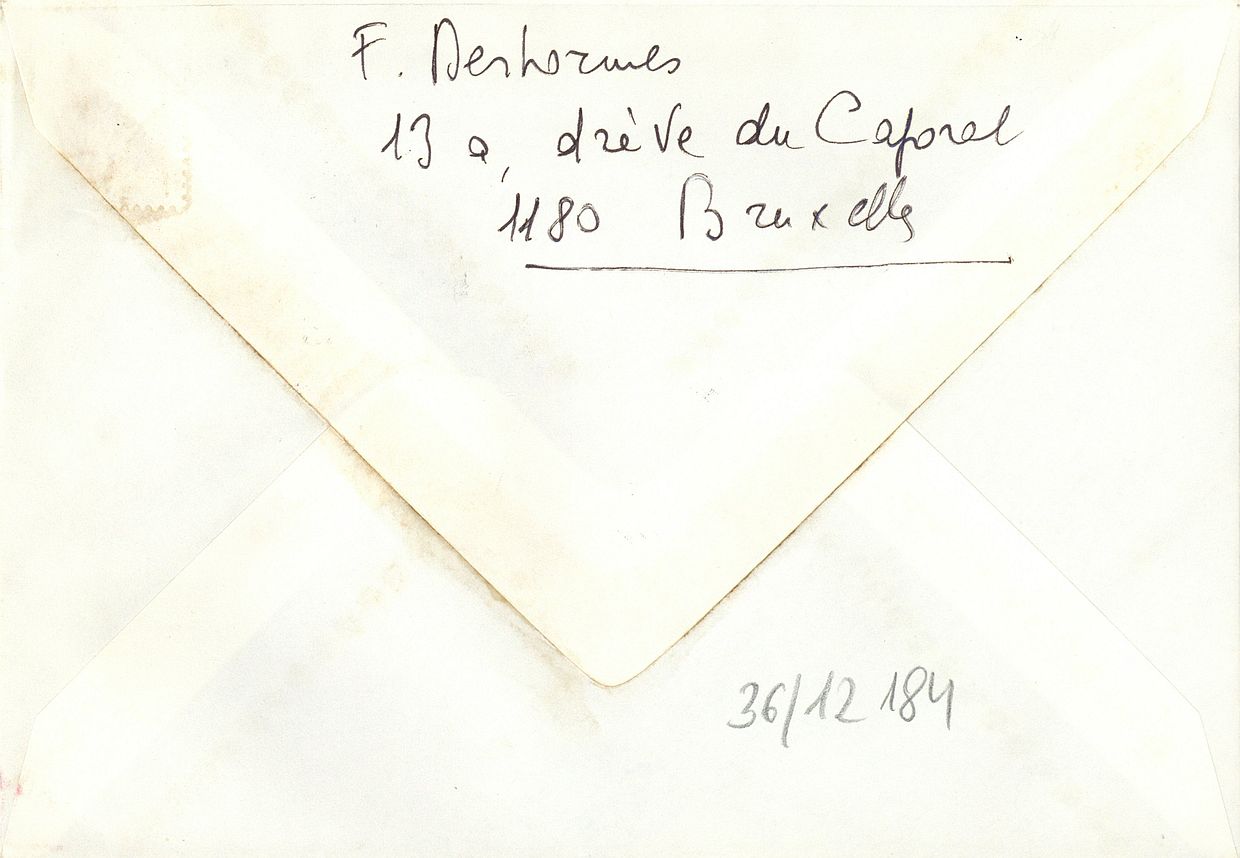 F. Deshormes
13 a, drève du Caporal
1180 Bruxelles
36/12 184